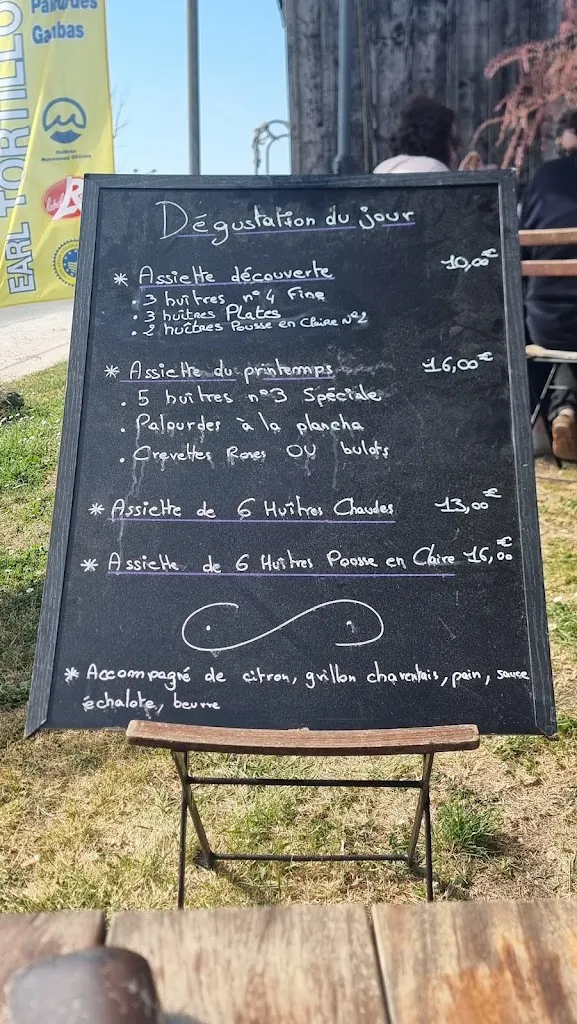 Palourdes
Gambas
EARL TORTILLO
Dégustation du jour
* Assiette découverte 10,00€
. 3 huîtres n°4 Fine
. 3 huîtres Plates
. 2 huîtres Pousse en Claire N°2
* Assiette du printemps 16,00€
. 5 huîtres n°3 Spéciale
. Palourdes à la plancha
. Crevettes Roses OU bulots
* Assiette de 6 Huîtres Chaudes 13,00€
* Assiette de 6 Huîtres Pousse en Claire 16,00€
* Accompagné de citron, grillon charentais, pain, sauce
échalote, beurre